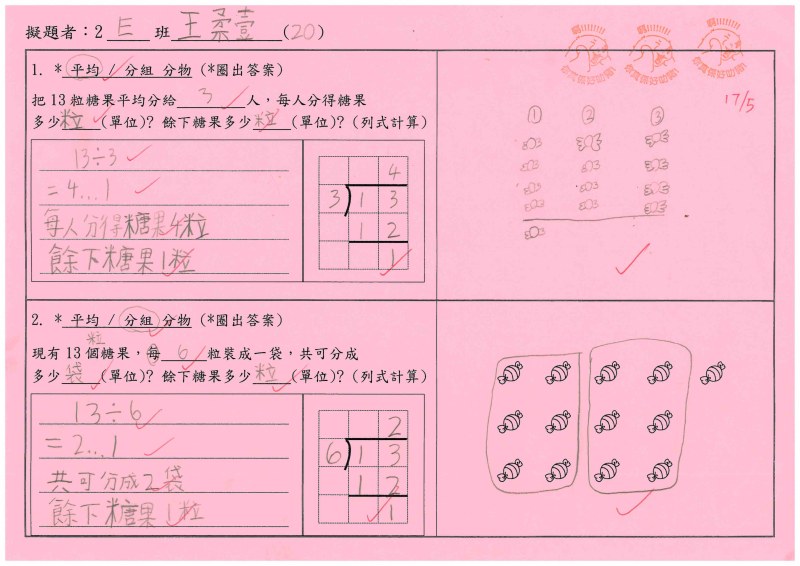 擬題者：2 E 班 王柔壹 (20)
17/5
1. * 平均 / 分組 分物 (*圈出答案)
把 13 粒糖果平均分給 3 人，每人分得糖果
多少 粒 (單位)? 餘下糖果多少 粒 (單位)? (列式計算)
13÷3
= 4...1
每人分得糖果4粒
餘下糖果1粒
4
3 1 3
1 2
1
① ② ③
2. * 平均 / 分組 分物 (*圈出答案)
粒
現有 13 個糖果，每 6 粒裝成一袋，共可分成
多少 袋 (單位)? 餘下糖果多少 粒 (單位)? (列式計算)
13÷6
= 2...1
共可分成2袋
餘下糖果1粒
2
6 1 3
1 2
1